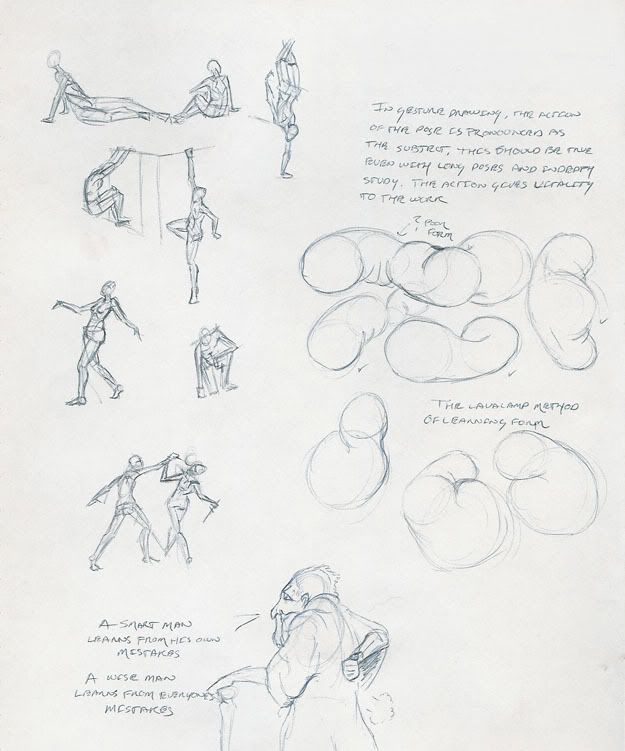 IN GESTURE DRAWING, THE ACTION
OF THE POSE IS PRONOUNCED AS
THE SUBJECT, THIS SHOULD BE TRUE
EVEN WITH LONG POSES AND INDEPTH
STUDY. THE ACTION GIVES VITALITY
TO THE WORK
? POOR
FORM
THE LAVALAMP METHOD
OF LEARNING FORM
A SMART MAN
LEARNS FROM HIS OWN
MISTAKES
A WISE MAN
LEARNS FROM EVERYONES
MISTAKES